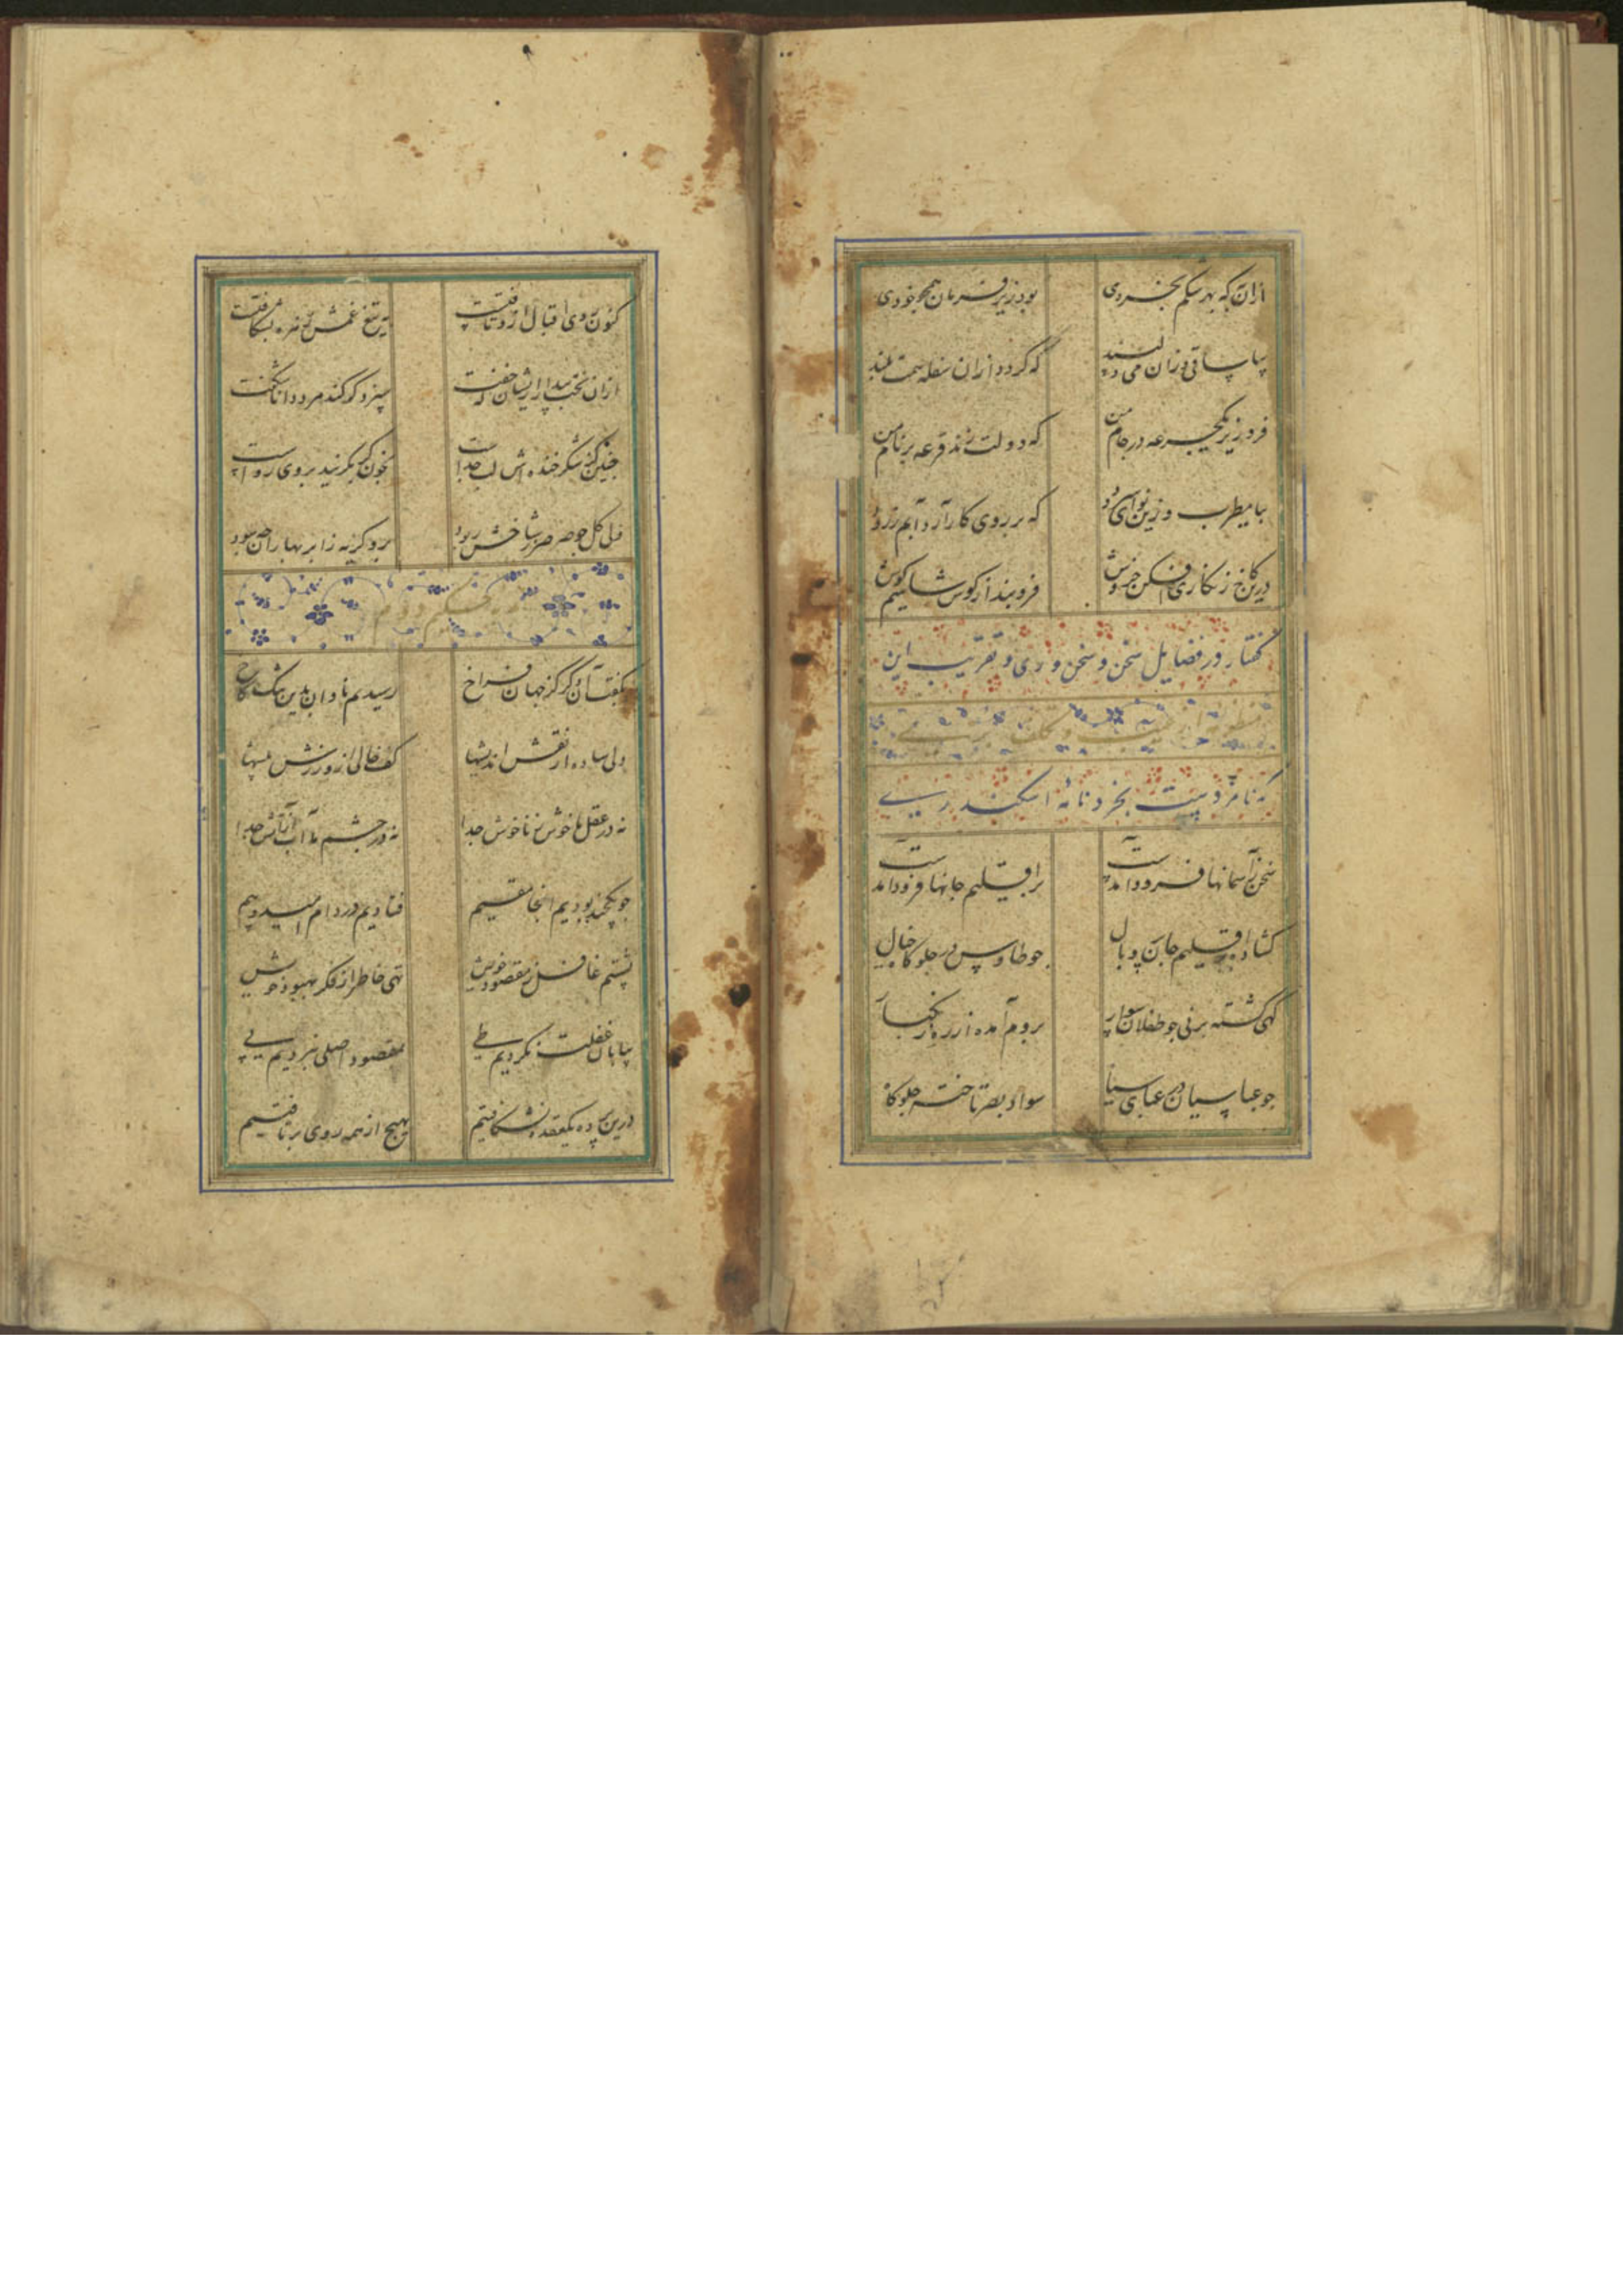 ازان به که بهر شکم بخردی
بود زیر فرمان همچو خودی
بیا ساقی و زان می دلپسند
که گردد ازان سفله همت بلند
فرو ریز یکجرعه در جام من
که دولت زند قرعه بر نام من
بیا مطرب و زین نوای
که بر روی کار آرد آبم ز رود
درین کاخ زنگاری افکن خروش
فرو بند از کوس شاهیم گوش
گفتار در فضایل سخن و سخن وری و تقریب این
که نامزد است بخردنامه اسکندری
سخن ز آسمانها فرود آمدست
بر اقلیم جانها فرود آمدست
گشاده در اقلیم جان پر و بال
چو طاوس در جلوگاه خیال
گهی گشته بر نی چو طفلان سوار
بروم آمده از ره زنگبار
چو عباسیان در عبای سیاه
سواد بصر ساخته جلوگاه
کنون روی اقبال ازو تافتست
به تیغ غمش
ازان بخت بیدار ایشان خفت
سزد گر کند مرد دانا شگفت
چنین کز شکر خنده اش لب جداست
بخون گر بگریند بر وی رواست
ولی گل چو صرصر ز شاخش ربود
برو گریه ز ابر بهاران چه سود
حکیم دوم
بگفت آن دگر کز جهان فراخ
رسیدیم نادان بدین سنگلاخ
دلی ساده از نقش اندیشها
کف خالی از ورزش پیشها
نه در عقل ما خوش ز ناخوش جدا
نه در چشم ما آب از آتش جدا
چو یکچند بودیم اینجا مقیم
فتادیم در دام امید و بیم
نشستیم غافل ز مقصود خویش
تهی خاطر از فکر بهبود خویش
بیابان غفلت نکردیم طی
بمقصود اصلی نبردیم پی
درین پرده یک عقده نشکافتیم
بهیچ از همه روی برتافتیم